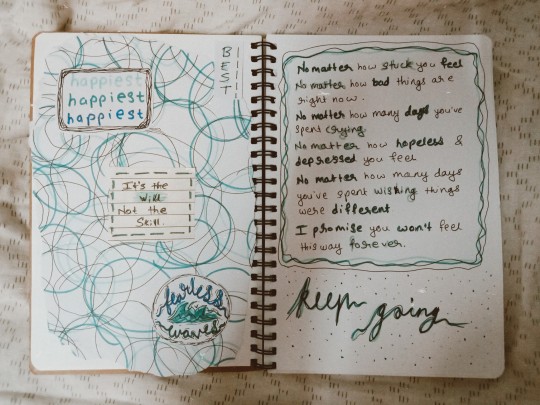 happiest
happiest
happiest
BEST!!!!
It's the
Will
Not the
Skill.
fearless
waves
No matter how stuck you feel
No matter how bad things are
right now.
No matter how many days you've
spent crying.
No matter how hopeless &
depressed you feel
No matter how many days
you've spent wishing things
were different
I promise you won't feel
this way forever.
keep
going